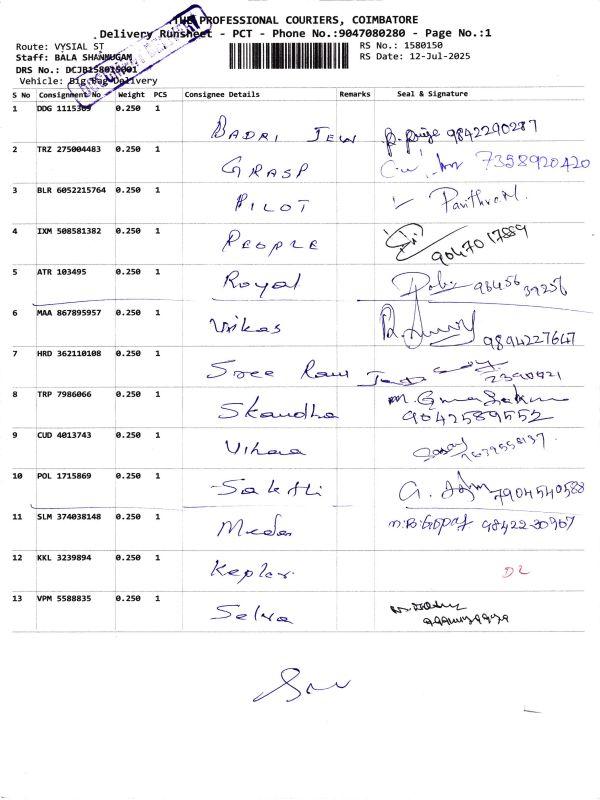 THE PROFESSIONAL COURIERS, COIMBATORE
Delivery Runsheet - PCT - Phone No.:9047080280 - Page No.:1
Route: VYSIAL ST
RS No.: 1580150
Staff: BALA SHANMUGAM
RS Date: 12-Jul-2025
DRS No.:
Vehicle: Big Bag Delivery
S No Consignment No Weight PCS Consignee Details Remarks Seal & Signature
1 DDG 0.250 1 BADRI JEW 9842290287
2 TRZ 275004483 0.250 1 GRASP 7358920420
3 BLR 6052215764 0.250 1 PILOT
4 IXM 508581382 0.250 1 PEOPLE 9047017889
5 ATR 103495 0.250 1 Royal
6 MAA 867895957 0.250 1 Vrikas 9894227647
7 HRD 362110108 0.250 1 Sree Ram
8 TRP 7986066 0.250 1 Skandha 9042589552
9 CUD 4013743 0.250 1 Vihaa
10 POL 1715869 0.250 1 Sakthi 7904540588
11 SLM 374038148 0.250 1
12 KKL 3239894 0.250 1 Kepler D2
13 VPM 5588835 0.250 1 Selva